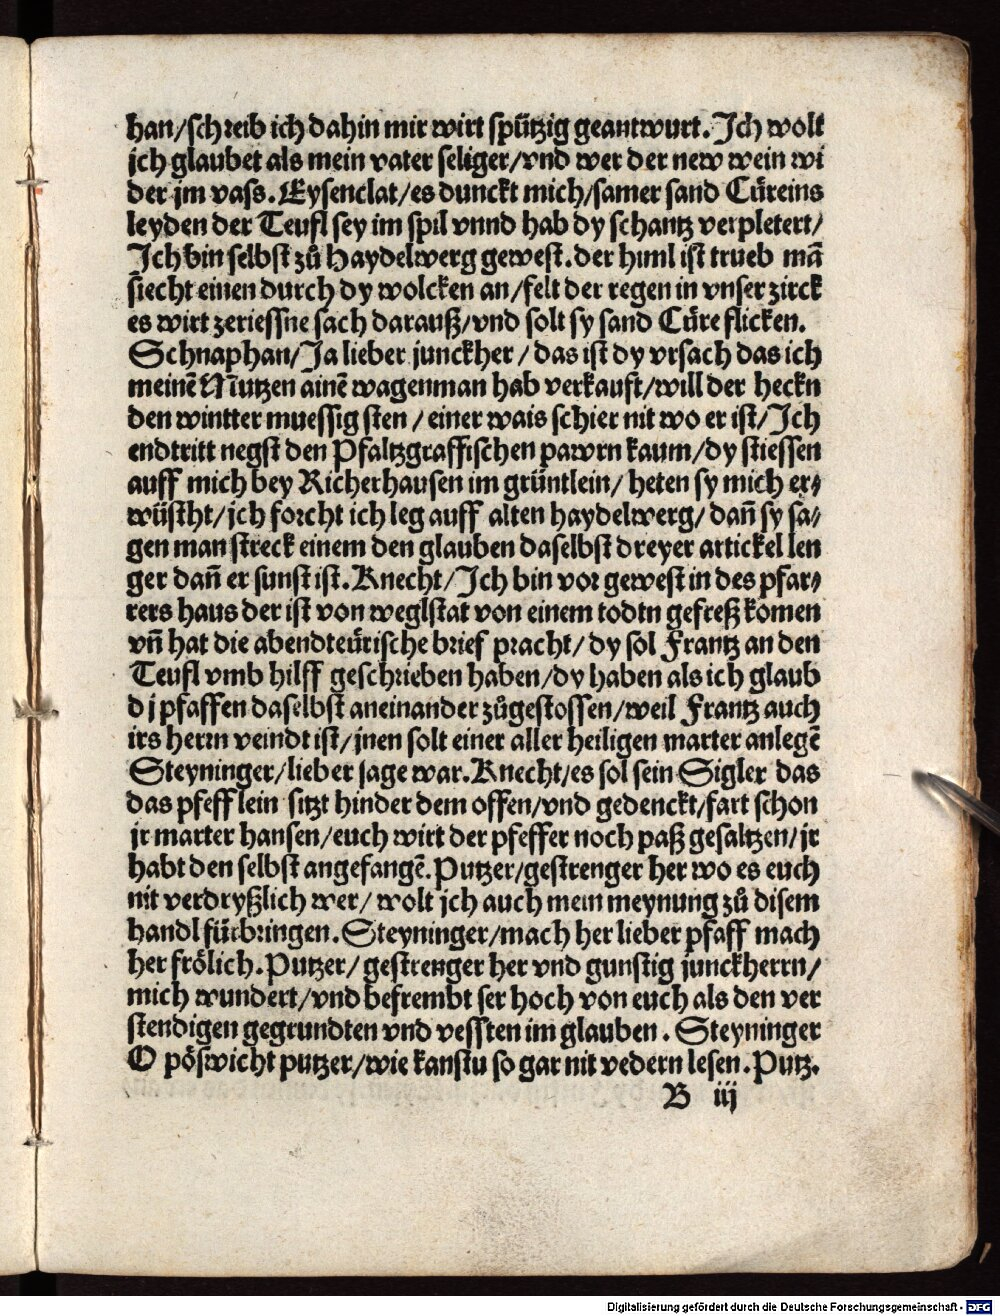 han/schreib ich dahin mir wirt spützig geantwurt. Ich wolt
jch glaubet als mein vater seliger/vnd wer der new wein wi
der jm vass. Eysenclat/es dunckt mich/samer sand Cůreins
leyden der Teufl sey im spil vnnd hab dy schantz verpletert/
Ich bin selbst zů Haydelwerg gewest. der himl ist trueb mā
siecht einen durch dy wolcken an/felt der regen in vnser zirck
es wirt zeriessne sach darauß/vnd solt sy sand Cůre flicken.
Schnaphan/Ja lieber junckher/das ist dy vrsach das ich
meinē Mutzen ainē wagenman hab verkauft/will der heckn
den wintter muessig sten/einer wais schier nit wo er ist/Ich
endtritt negst den Pfaltzgraffischen pawrn kaum/dy stiessen
auff mich bey Richerhausen im grüntlein/heten sy mich er⸗
wüstht/jch forcht ich leg auff alten haydelwerg/dañ sy sa⸗
gen man streck einem den glauben daselbst dreyer artickel len
ger dañ er sunst ist. Knecht/Ich bin vor gewest in des pfar⸗
rers haus der ist von weglstat von einem todtn gefreß komen
vñ hat die abendteürische brief pracht/dy sol Frantz an den
Teufl vmb hilff geschrieben haben/dy haben als ich glaub
d j pfaffen daselbst aneinander zůgestossen/weil Frantz auch
irs herrn veindt ist/jnen solt einer aller heiligen marter anlegē
Steyninger/lieber sage war. Knecht/es sol sein Sigler das
das pfefflein sitzt hinder dem offen/vnd gedenckt/fart schon
jr marter hansen/euch wirt der pfeffer noch paß gesaltzen/jr
habt den selbst angefangē. Putzer/gestrenger her wo es euch
nit verdryßlich wer/wolt jch auch mein meynung zů disem
handl fürbringen. Steyninger/mach her lieber pfaff mach
her frölich. Putzer/gestrenger her vnd gunstig junckherrn/
mich wundert/vnd befrembt ser hoch von euch als den ver
stendigen gegrundten vnd vessten im glauben. Steyninger
O pöswicht putzer/wie kanstu so gar nit vedern lesen. Putz.
B iij
Digitalisierung gefördert durch die Deutsche Forschungsgemeinschaft - DFG